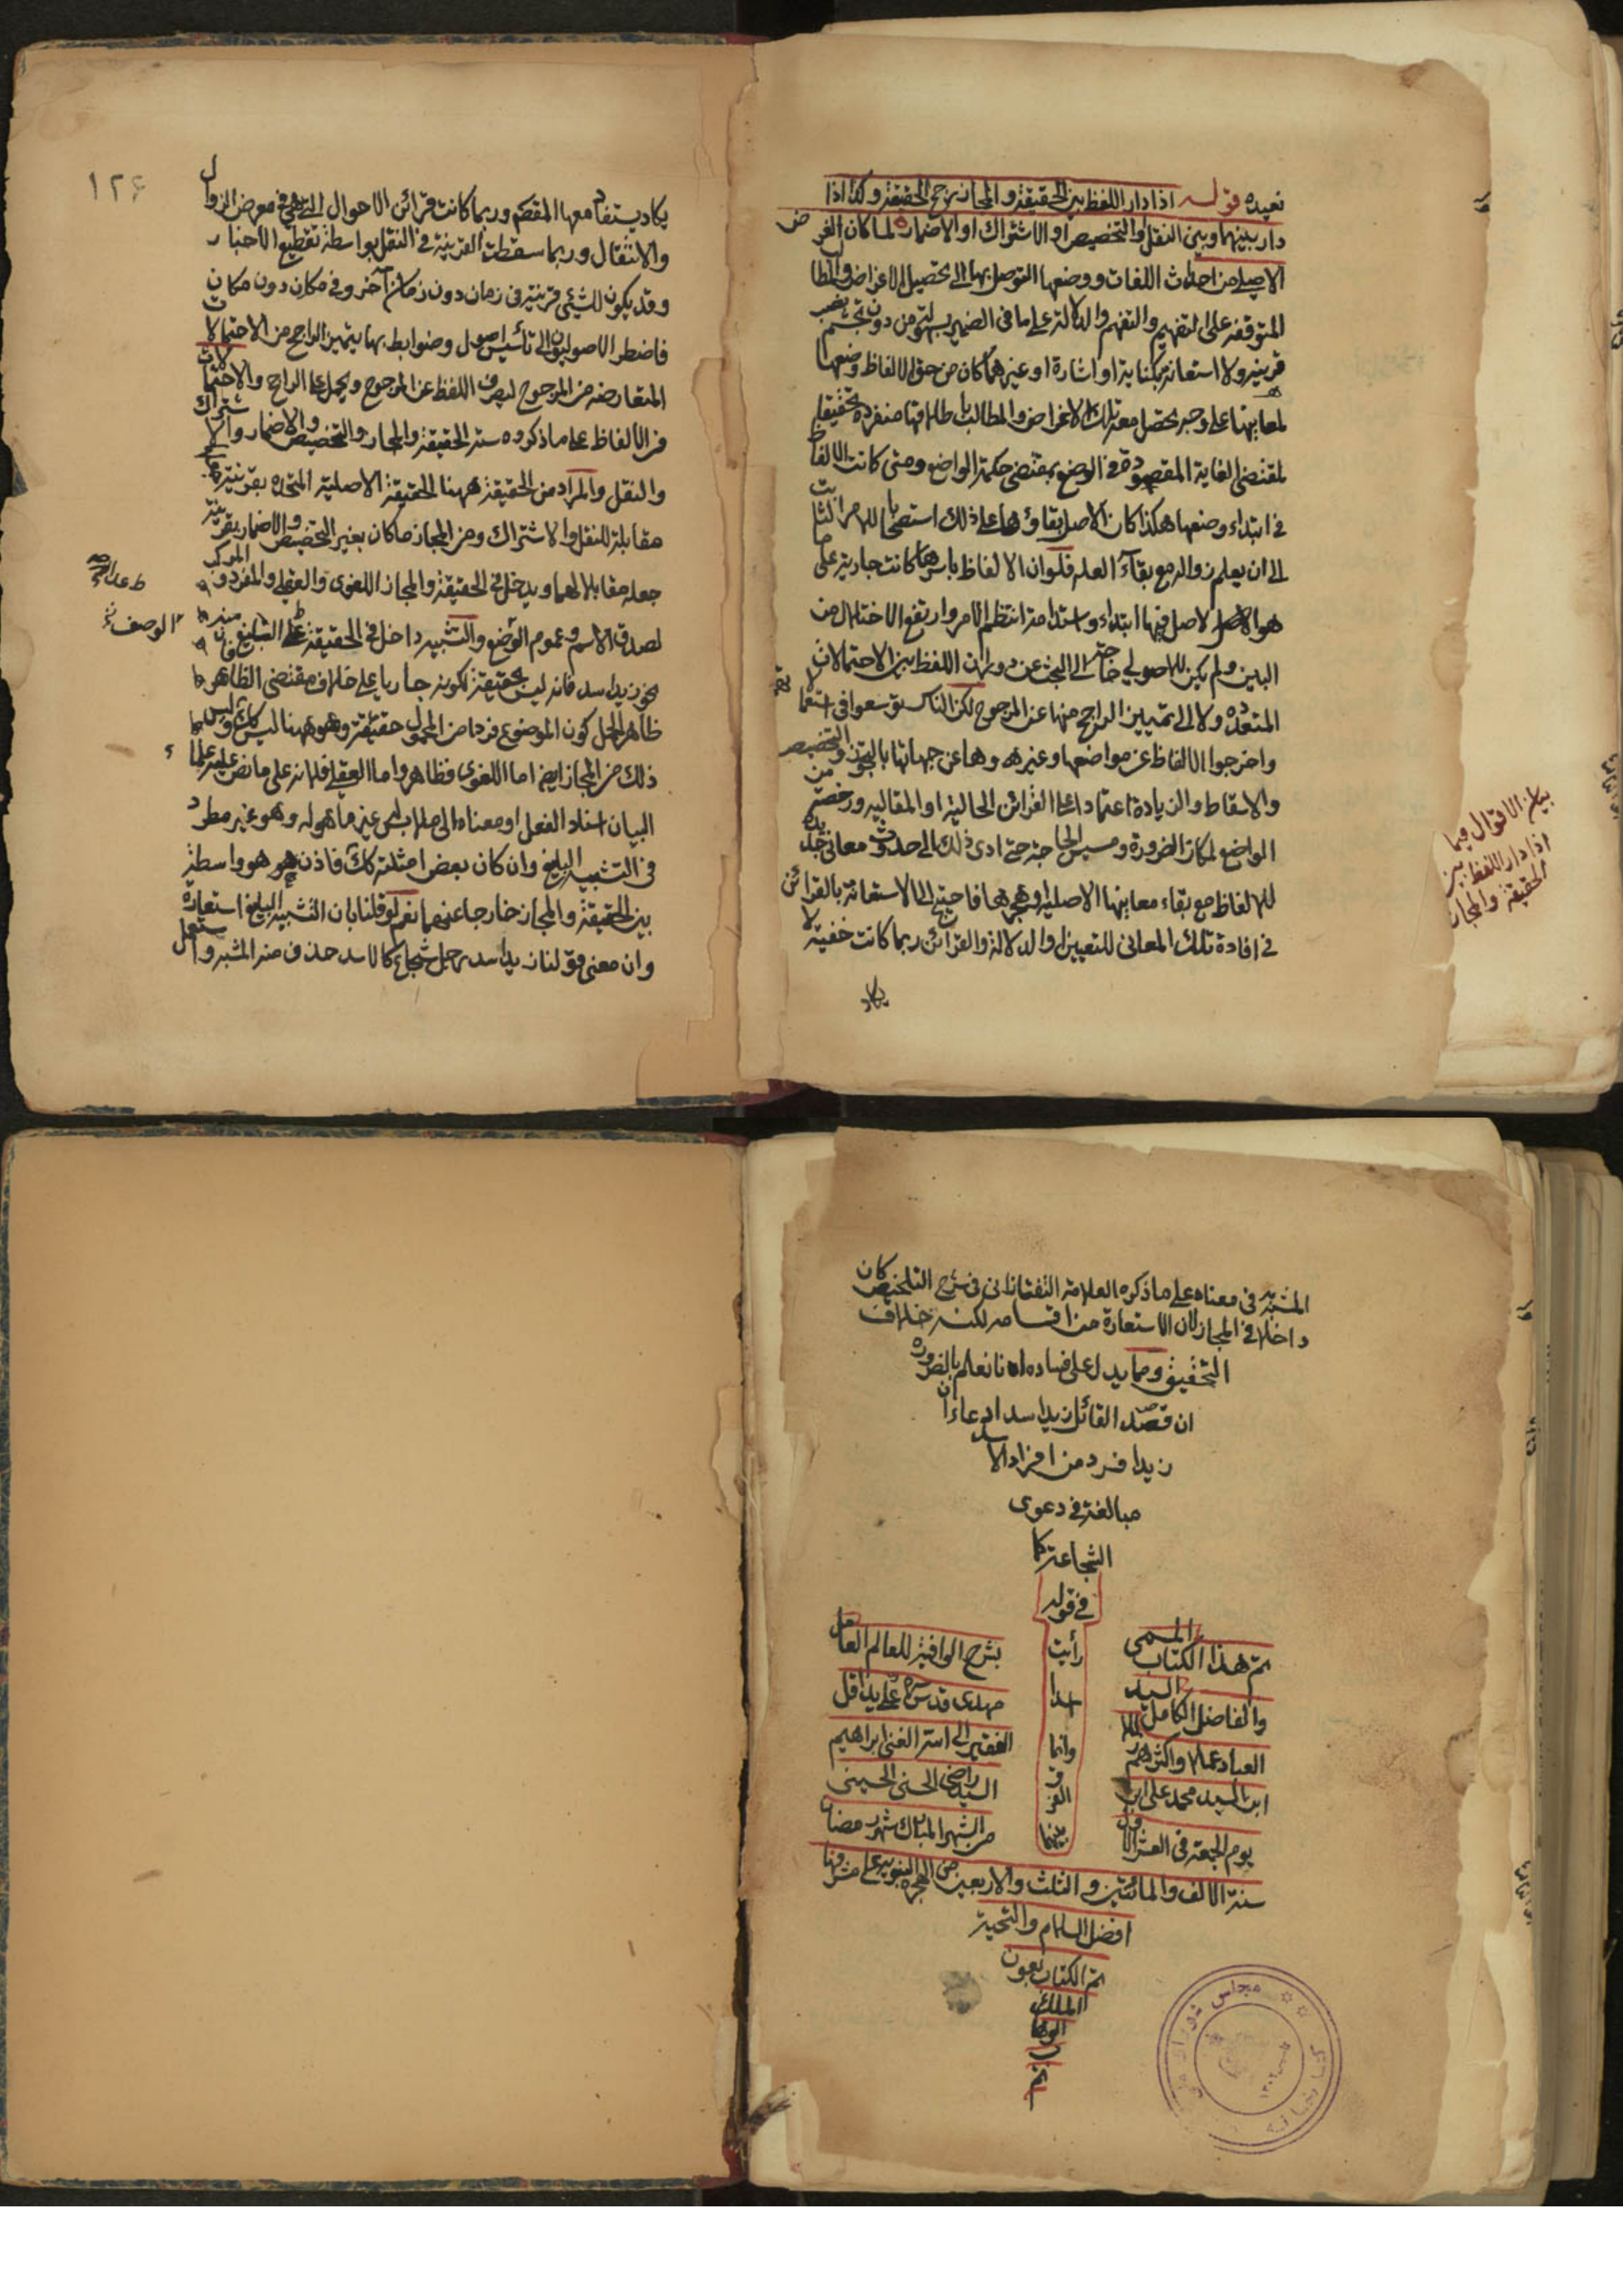 نعيده قوله اذا دار اللفظ بين الحقيقة والمجاز يرجح الحقيقة وكذا اذا
دار بينهما وبين النقل او التخصيص او الاشتراك او الاضمار لما كان الغرض
الاصلي من احداث اللغات ووضعها التوصل بها الى تحصيل الاغراض والمطا
المتوقفه على التفهيم والتفهم والدلالة على ما في الضمير بسهولة من دون تجشم نصب
قرينة ولا استعانة بكناية او اشارة او غيرهما كان من حق الالفاظ وضعها
لمعانيها على وجه يحصل معه تلك الاغراض والمطالب باطلاقها منفرده تحقيقا
لمقتضى الغاية المقصودة في الوضع بمقتضى حكمة الواضع ومتى كانت الالفاظ
في ابتداء وضعها هكذا كان الاصل بقاؤها على ذلك استصحابا للامر الثابت
الى ان يعلم زواله مع بقاء العله فلو ان الالفاظ باسرها كانت جارية على ما
هو الاصل فيها ابتداء واستدامة انتظم الامر وارتفع الاختلال من
البين ولم يكن للاصولي حاجة الى البحث عن دوران اللفظ بين الاحتمالات
المتعدده ولا الى تمييز الراجح منها عن المرجوح لكن الناس توسعوا في استعما
واخرجوا الالفاظ عن مواضعها وغيروها عن جهاتها بالتجوز والتخصيص
والاسقاط والزيادة اعتمادا على القرائن الحالية او المقاليه ورخصة من
الواضع لمكان الضرورة ومسيس الحاجة حتى ادى ذلك الى حدوث معاني جديده
للالفاظ مع بقاء معانيها الاصلية وهجرها فاحتيج الى الاستعانة بالقرائن
في افادة تلك المعاني للتعيين او الدلالة والقرائن ربما كانت خفية لا
يكاد
بيان الاقوال فيما
اذا دار اللفظ بين
الحقيقة والمجاز
١٢۶
يكاد يستفاد معها المقصود وربما كانت قرائن الاحوال التي هي في معرض الزوال
والانتقال وربما سقطت القرينة في النقل بواسطة تقطيع الاخبار
وقد يكون للشئ قرينة في زمان دون زمان آخر وفي مكان دون مكان
فاضطر الاصوليون الى تأسيس اصول وضوابط بها يتميز الراجح من الاحتمالات
المتعارضه من المرجوح ليصرف اللفظ عن المرجوح ويحمل على الراجح والاحتمالات
في الالفاظ على ما ذكروه ستة الحقيقة والمجاز والتخصيص والاضمار والاشتراك
والنقل والمراد من الحقيقة ههنا الحقيقة الاصلية المتحده بقرينة
مقابلة للنقل والاشتراك ومن المجاز ما كان بغير التخصيص والاضمار بقرينة
جعله مقابلا لهما ويدخل في الحقيقة والمجاز اللغوى والعقلى والمفرد والمركب
لصدق الاسم وعموم الوضع والتشبيه داخل في الحقيقة
نحو زيد اسد فانه ليس بحقيقة لكونه جاريا على خلاف مقتضى الظاهر
ظاهر الحمل كون الموضوع فردا من المحمول حقيقة وهو ههنا ليس كك وليس
ذلك من المجاز ايضا اما اللغوى فظاهر واما العقلى فلانه على ما نص عليه علماء
البيان اسناد الفعل او معناه الى ملابس غير ما هو له وهو غير مطرد
في التشبيه البليغ وان كان بعض امثلته كك فاذن هو واسطة
بين الحقيقة والمجاز خارجا عنهما نعم لو قلنا بان التشبيه البليغ استعارة
وان معنى قولنا زيد اسد رجل شجاع كالاسد حذف منه المشبه واستعمل
الوصف
المشبه به في معناه على ما ذكره العلامة التفتازاني في شرح التلخيص كان
داخلا في المجاز لان الاستعارة من اقسامه لكنه خلاف
التحقيق ومما يدل على فساده انا نعلم بالضرورة
ان قصد القائل زيد اسد ادعاء ان
زيدا فرد من افراد الاسد
مبالغة في دعوى
الشجاعة كما
في قوله
رأيت
اسدا
وانما
الفرق
بينهما
تم هذا الكتاب المسمى بشرح الوافية للعالم العامل
والفاضل الكامل السيد مهدى قدس سره على يد اقل
العباد عملا واكثرهم زللا الفقير الى الله الغنى ابراهيم
ابن السيد محمد على ابن السيد راضى الحسنى الحسينى
يوم الجمعة في العشر الاول من الشهر المبارك شهر رمضان
سنة الالف والمائتين والثلث والاربعين من الهجرة النبويه على مشرفها
افضل السلام والتحية
تم الكتاب بعون
الملك
الوها
ب
تم
مجلس شوراى ملى
كتابخانه